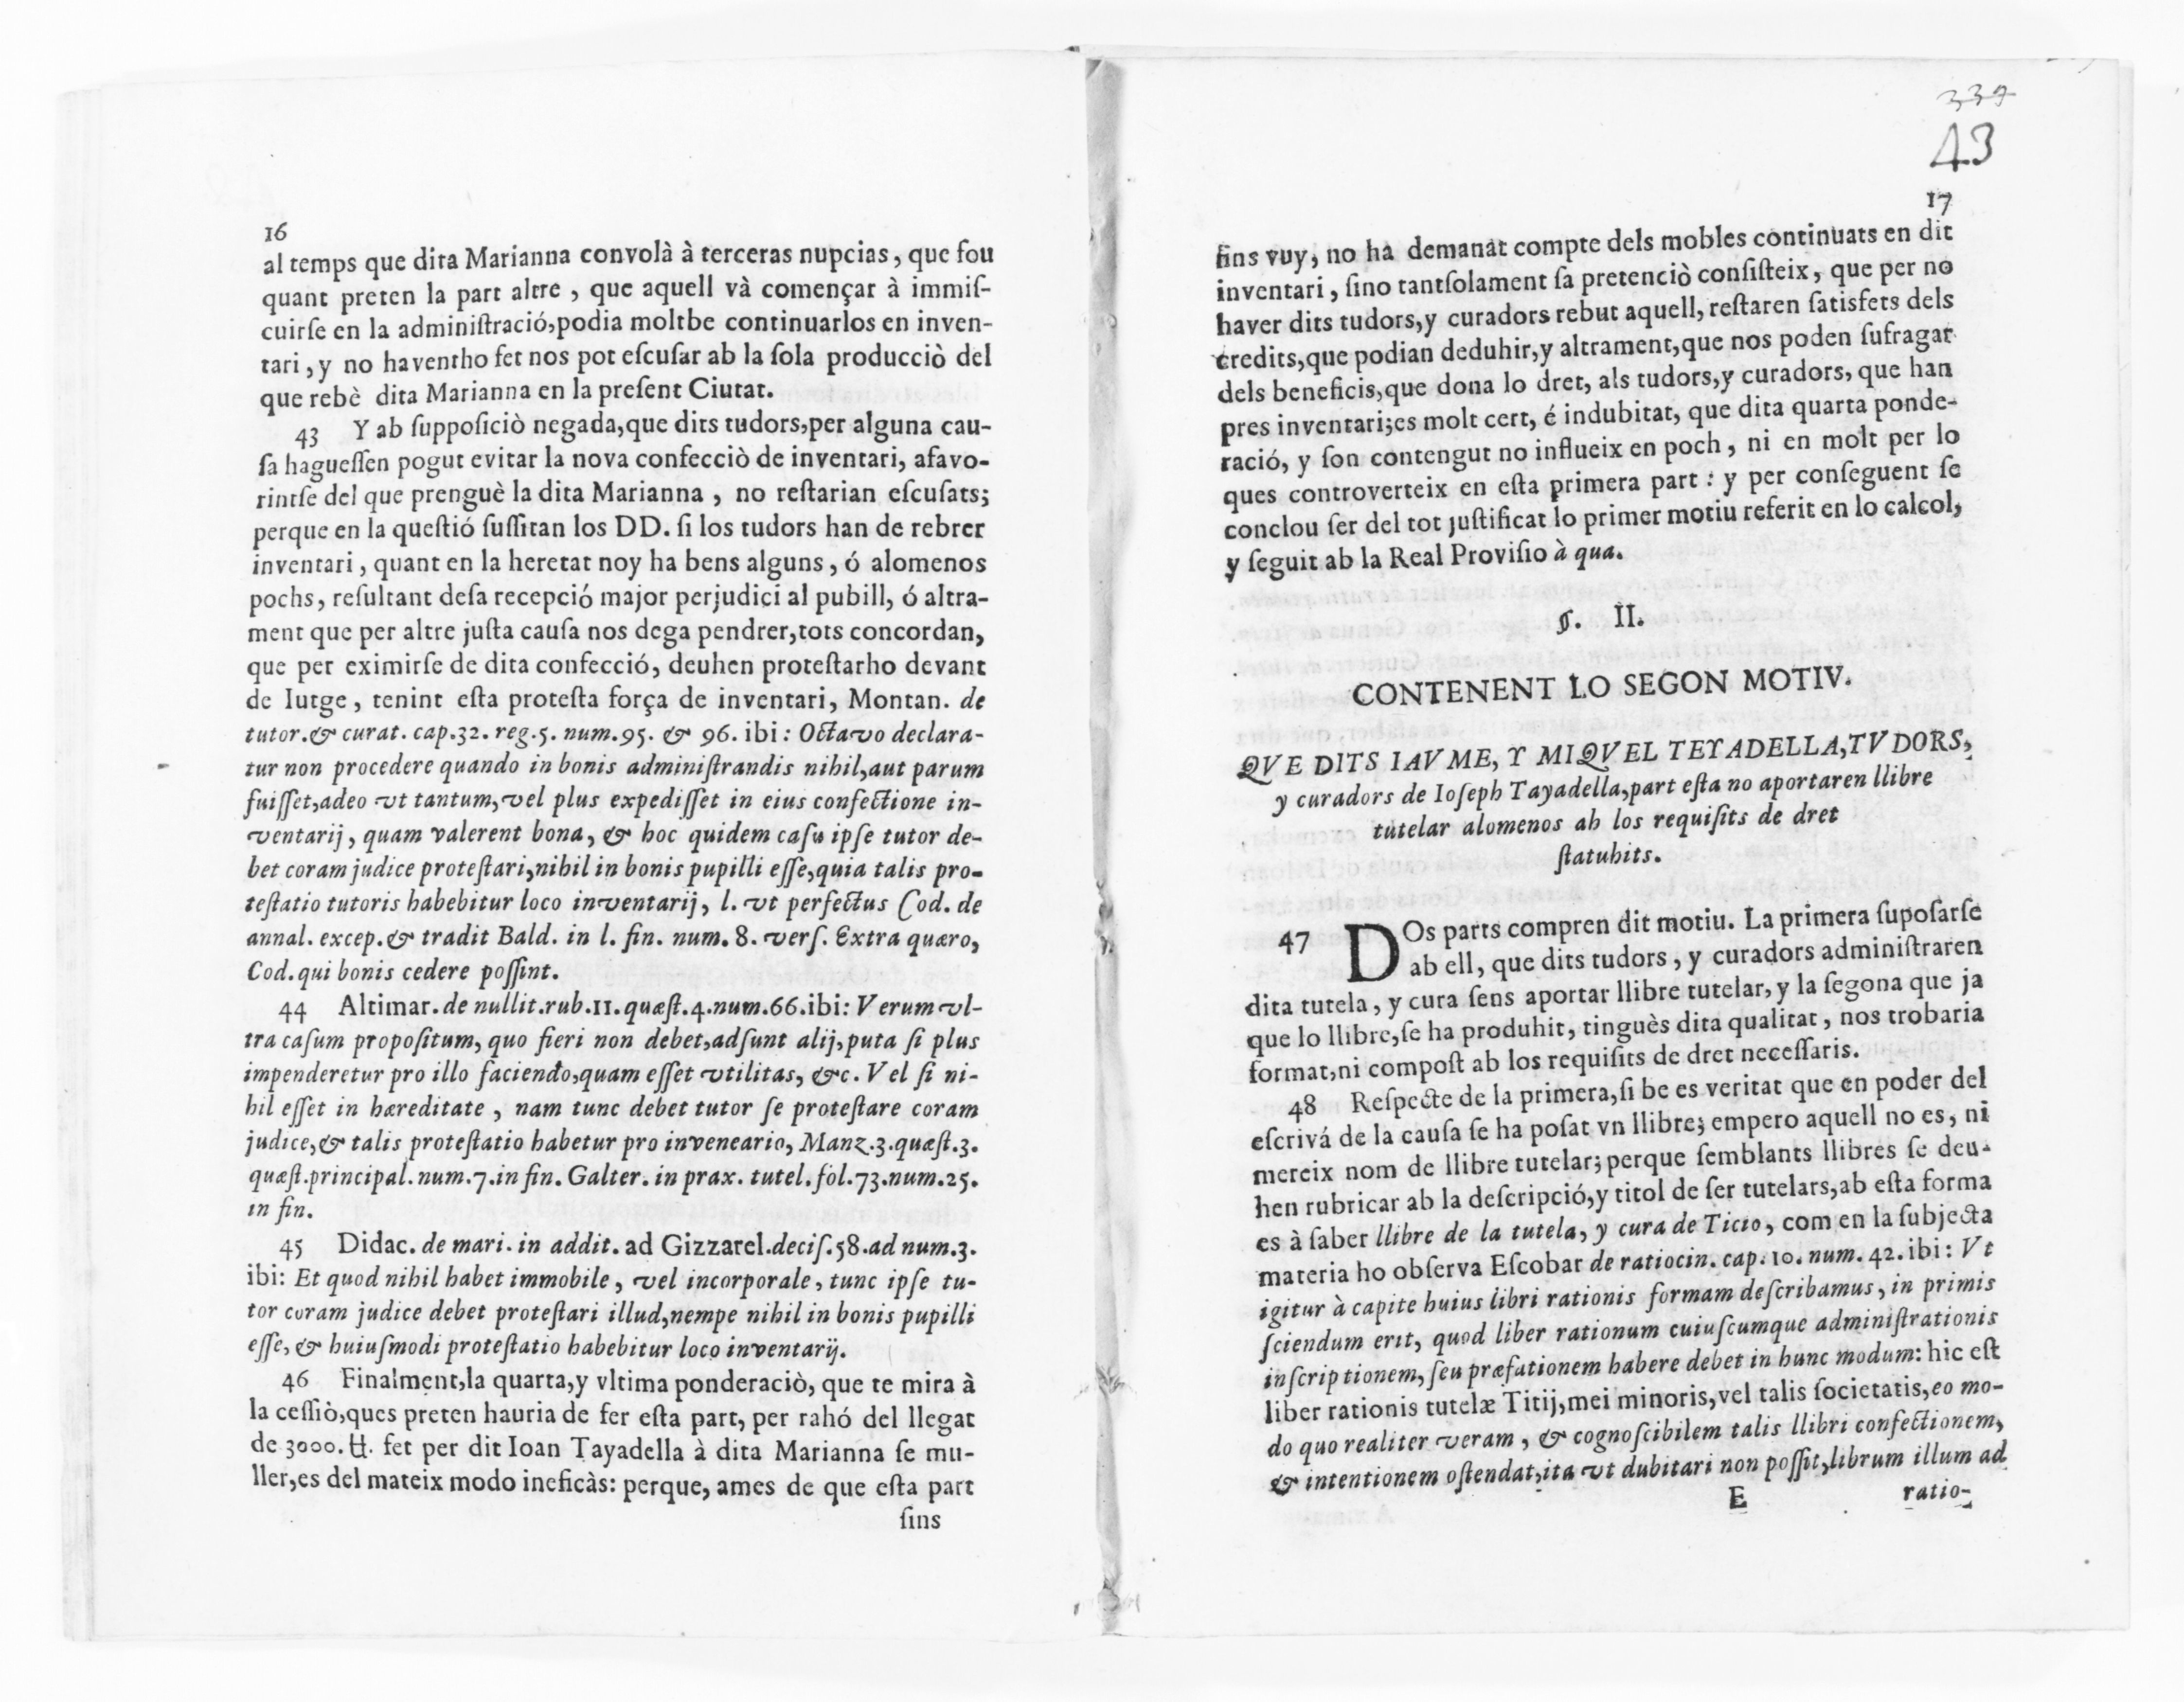 16
al temps que dita Marianna convolà à terceras nupcias, que fou
quant preten la part altre, que aquell và començar à immiſ-
cuirſe en la adminiſtració,podia moltbe continuarlos en inven-
tari, y no haventho fet nos pot eſcuſar ab la ſola producciò del
que rebè dita Marianna en la preſent Ciutat.
43 Y ab ſuppoſiciò negada,que dits tudors,per alguna cau-
ſa hagueſſen pogut evitar la nova confecciò de inventari, afavo-
rintſe del que prenguè la dita Marianna, no reſtarian eſcuſats;
perque en la queſtió ſuſſitan los DD. ſi los tudors han de rebrer
inventari, quant en la heretat noy ha bens alguns, ó alomenos
pochs, reſultant deſa recepció major perjudici al pubill, ó altra-
ment que per altre juſta cauſa nos dega pendrer,tots concordan,
que per eximirſe de dita confecció, deuhen proteſtarho devant
de Iutge, tenint eſta proteſta força de inventari, Montan. de
tutor.& curat. cap.32. reg.5. num.95. & 96. ibi: Octavo declara-
tur non procedere quando in bonis adminiſtrandis nihil,aut parum
fuiſſet,adeo vt tantum,vel plus expediſſet in eius confectione in-
ventarij, quam valerent bona, & hoc quidem caſu ipſe tutor de-
bet coram judice proteſtari,nihil in bonis pupilli eſſe,quia talis pro-
teſtatio tutoris habebitur loco inventarij, l. vt perfectus Cod. de
annal. excep.& tradit Bald. in l. fin. num. 8. verſ. Extra quæro,
Cod.qui bonis cedere poſſint.
44 Altimar. de nullit.rub.11.quæſt.4.num.66.ibi: Verum vl-
tra caſum propoſitum, quo fieri non debet,adſunt alij,puta ſi plus
impenderetur pro illo faciendo,quam eſſet vtilitas, &c. Vel ſi ni-
hil eſſet in hæreditate, nam tunc debet tutor ſe proteſtare coram
judice,& talis proteſtatio habetur pro inveneario, Manz.3.quæſt.3.
quæſt.principal.num.7.in fin. Galter. in prax. tutel.fol.73.num.25.
in fin.
45 Didac. de mari. in addit. ad Gizzarel.deciſ.58.ad num.3.
ibi: Et quod nihil habet immobile, vel incorporale, tunc ipſe tu-
tor coram judice debet proteſtari illud,nempe nihil in bonis pupilli
eſſe, & huiuſmodi proteſtatio habebitur loco inventarij.
46 Finalment,la quarta,y vltima ponderaciò, que te mira à
la ceſſiò,ques preten hauria de fer eſta part, per rahó del llegat
de 3000. ℔. fet per dit Ioan Tayadella à dita Marianna ſe mu-
ller,es del mateix modo ineficàs: perque, ames de que eſta part
ſins
339
43
17
fins vuy, no ha demanat compte dels mobles continuats en dit
inventari, ſino tantſolament ſa pretenciò conſiſteix, que per no
haver dits tudors,y curadors rebut aquell, reſtaren ſatisfets dels
credits,que podian deduhir,y altrament,que nos poden ſufragar
dels beneficis,que dona lo dret, als tudors,y curadors, que han
pres inventari;es molt cert, é indubitat, que dita quarta ponde-
ració, y ſon contengut no influeix en poch, ni en molt per lo
ques controverteix en eſta primera part: y per conſeguent ſe
conclou ſer del tot juſtificat lo primer motiu referit en lo calcol,
y ſeguit ab la Real Proviſio à qua.
§. II.
CONTENENT LO SEGON MOTIV.
QVE DITS IAVME, Y MIQVEL TEYADELLA,TVDORS,
y curadors de Ioſeph Tayadella,part eſta no aportaren llibre
tutelar alomenos ab los requiſits de dret
ſtatuhits.
47 DOs parts compren dit motiu. La primera ſupoſarſe
ab ell, que dits tudors, y curadors adminiſtraren
dita tutela, y cura ſens aportar llibre tutelar, y la ſegona que ja
que lo llibre,ſe ha produhit, tinguès dita qualitat, nos trobaria
format,ni compoſt ab los requiſits de dret neceſſaris.
48 Reſpecte de la primera,ſi be es veritat que en poder del
eſcrivá de la cauſa ſe ha poſat vn llibre; empero aquell no es, ni
mereix nom de llibre tutelar; perque ſemblants llibres ſe deu-
hen rubricar ab la deſcripció,y titol de ſer tutelars,ab eſta forma
es à ſaber llibre de la tutela, y cura de Ticio, com en la ſubjecta
materia ho obſerva Eſcobar de ratiocin. cap. 10. num. 42. ibi: Vt
igitur à capite huius libri rationis formam deſcribamus, in primis
ſciendum erit, quod liber rationum cuiuſcumque adminiſtrationis
inſcriptionem, ſeu præfationem habere debet in hunc modum: hic eſt
liber rationis tutelæ Titij,mei minoris,vel talis ſocietatis,eo mo-
do quo realiter veram, & cognoſcibilem talis llibri confectionem,
& intentionem oſtendat,ita vt dubitari non poſſit,librum illum ad
E ratio-